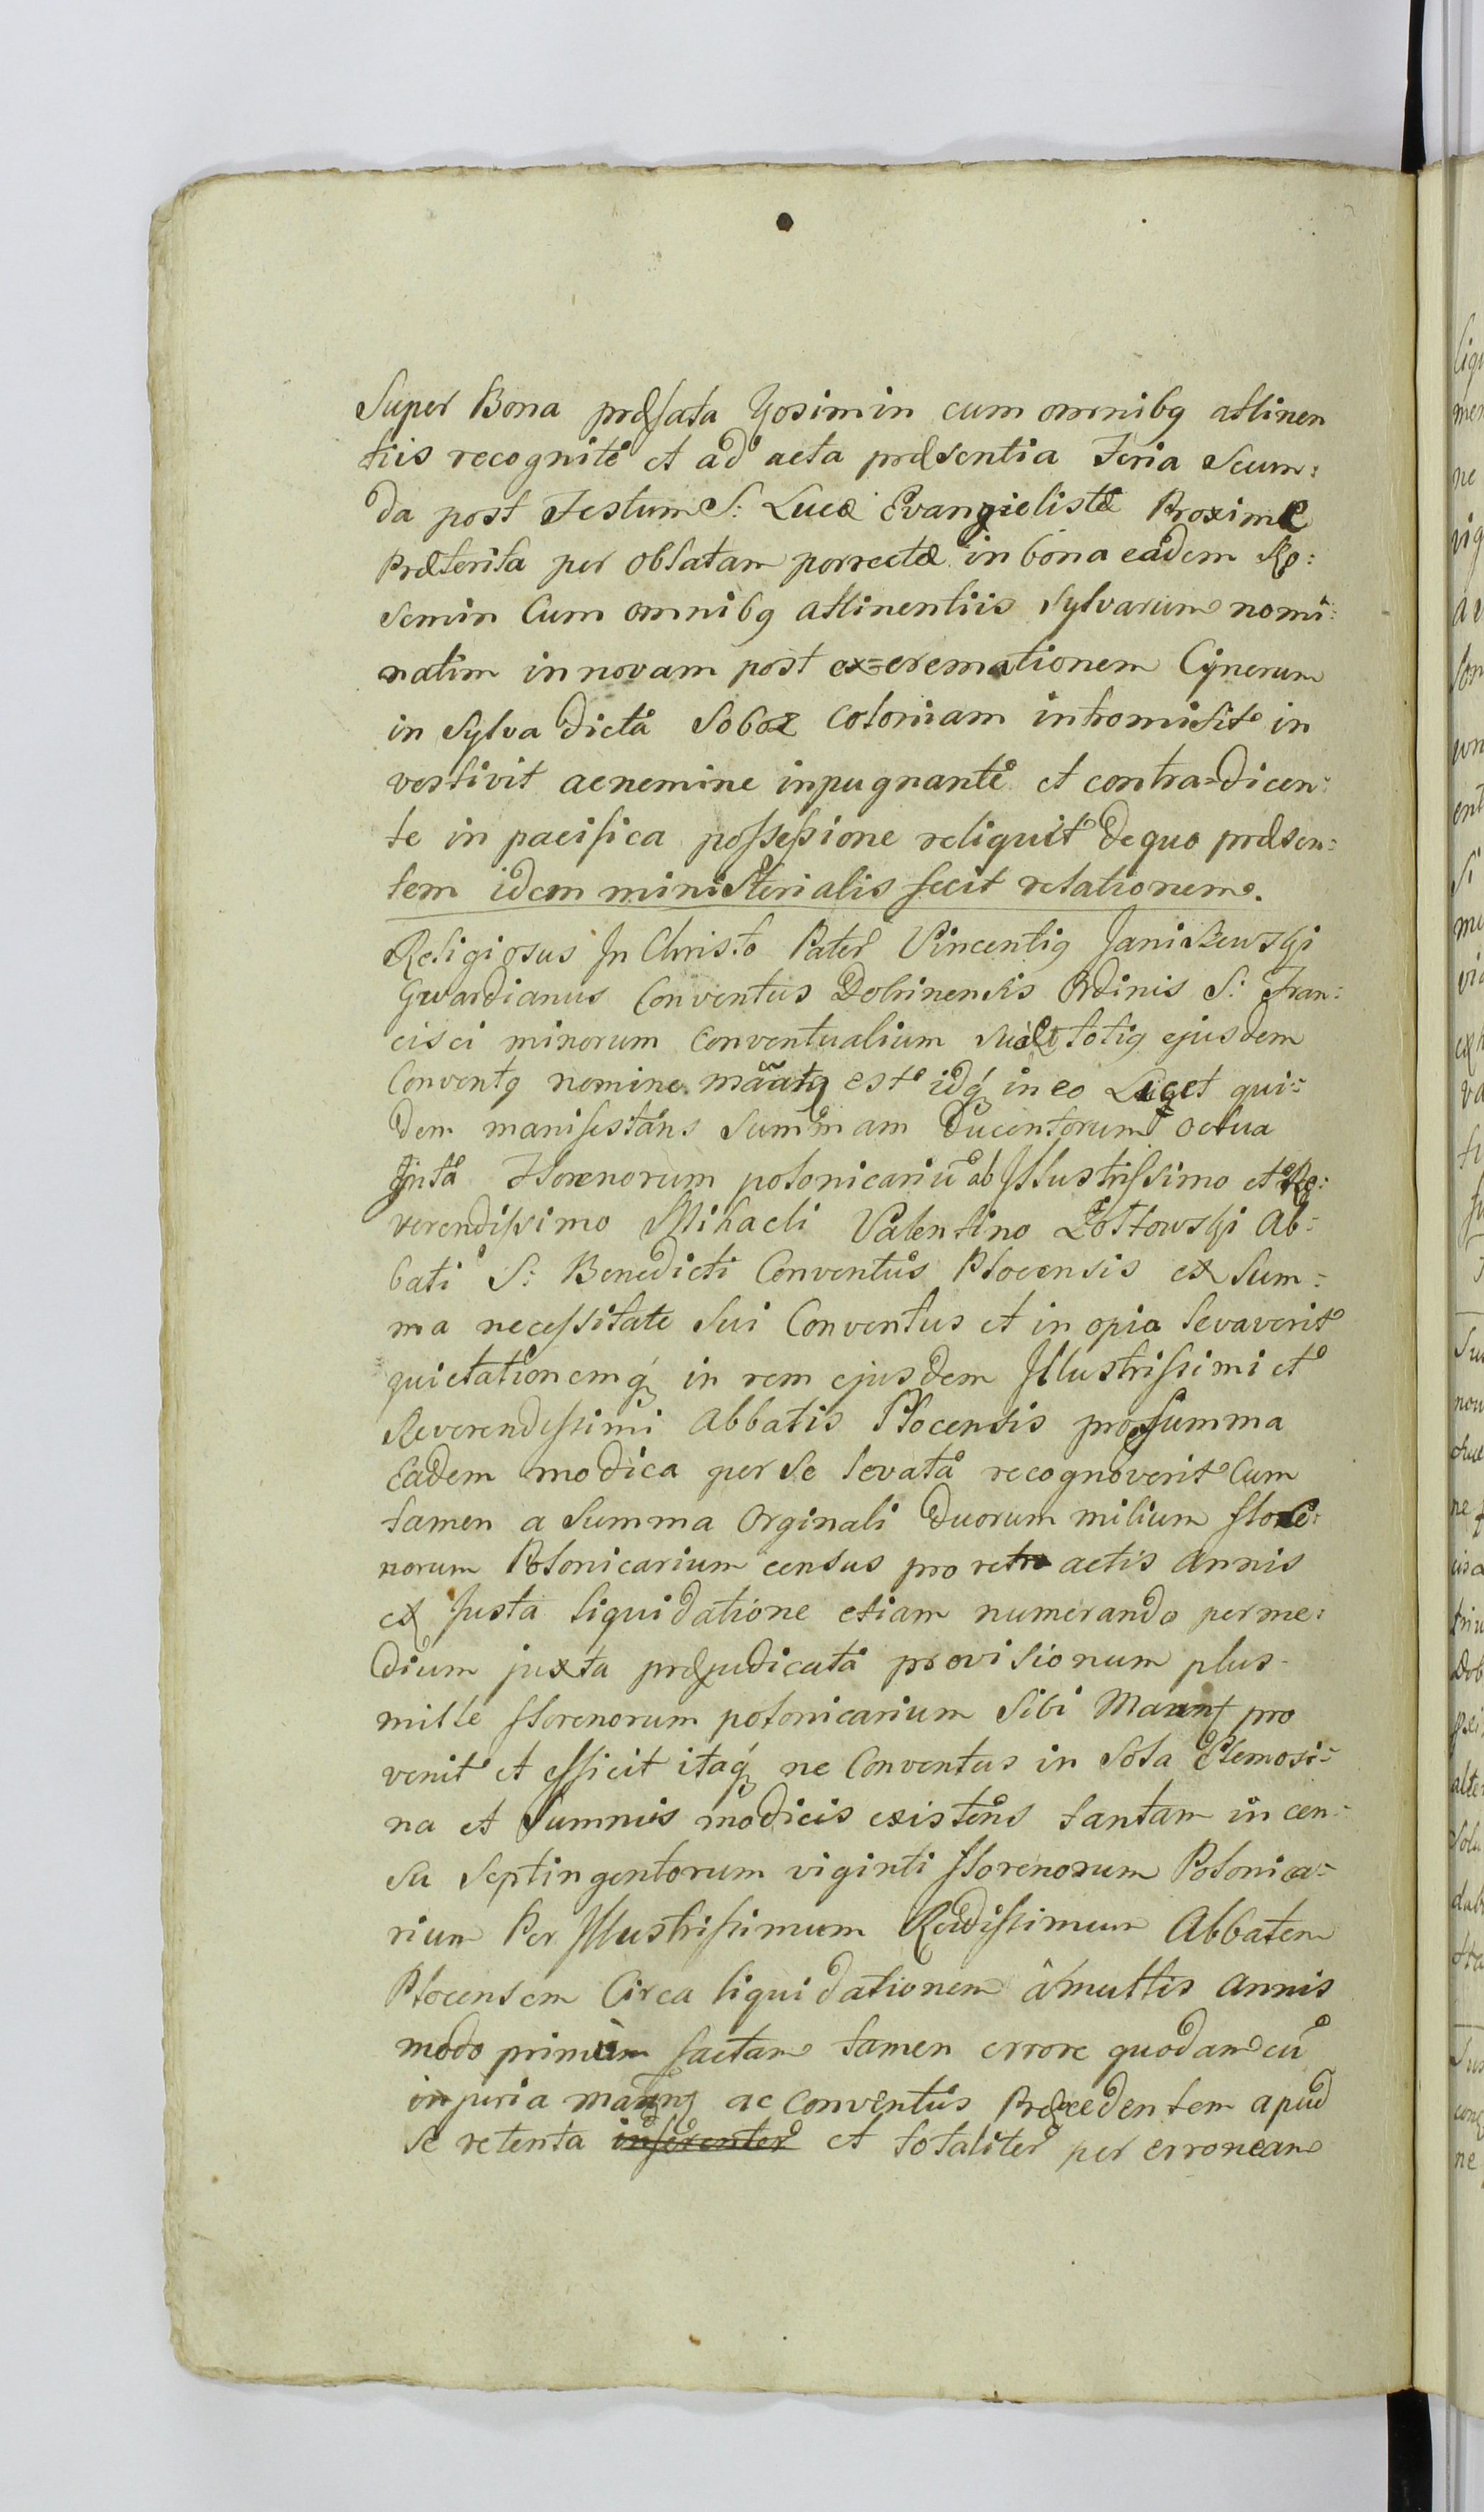 Super Bona præfata Gosimin cum omnibq attinen
tiis recognitè et ad acta præsentia Feria Scum:
da post Festum S: Lucæ Evangielistæ Proximæ
Præterita per oblatam porrectæ in bona eadem Ko:
semin Cum omnibq attinentiis Sylvarum nomi:
natim in novam post ex=eremationem Cÿnerum
in Sylva dictâ Soboz coloniam intromisit in
vestivit ac nemine inpugnante et contra=dicen:
te in pacifica possessione reliquit de quo præsen:
tem idem ministerialis fecit relationem.
Religiosus In Christo Pater Vincentiq Janiszewski
Gwardianus Conventus Dobrinensis Ordinis S: Fran:
cisci minorum Conventualium totiq ejusdem
Conventq nomine est idq́ in eo quiet qui=
dem manifestans Summam Ducentorum octua
ginta Florenorum polonicariū ab Illustrissimo et Re:
verendissimo Mihaeli Valentino Zołtowski Ab=
bati S: Benedicti Conventus Plocensis ex Sum=
ma necessitate Sui Conventus et in opia levaverit
quietationemq́ in rem ejusdem Illustrissimi et
Reverendissimi Abbatis Plocensis pro Summa
Eadem modica per se levata recognoverit Cum
tamen a Summa Orginali Duorum milium flore:
norum Polonicarium census pro retro actis annis
ex Justa liquidatione etiam numerando per me:
dium juxta præjudicata provisionum plus
mille florenorum polonicarium Sibi pro
venit et efficit itaq́ ne Conventus in Sola Elemosi=
na et Summis modicis existens tantam in cen=
su Septingentorum viginti florenorum Polonica=
rium Per Illustrissimum Rewdissimum Abbatem
Plocensem Circa liquidationem â multis annis
modo primum factam tamen errore quodam cū
injuria ac Conventus Præcedentem apud
se retenta et totaliter per erroneam